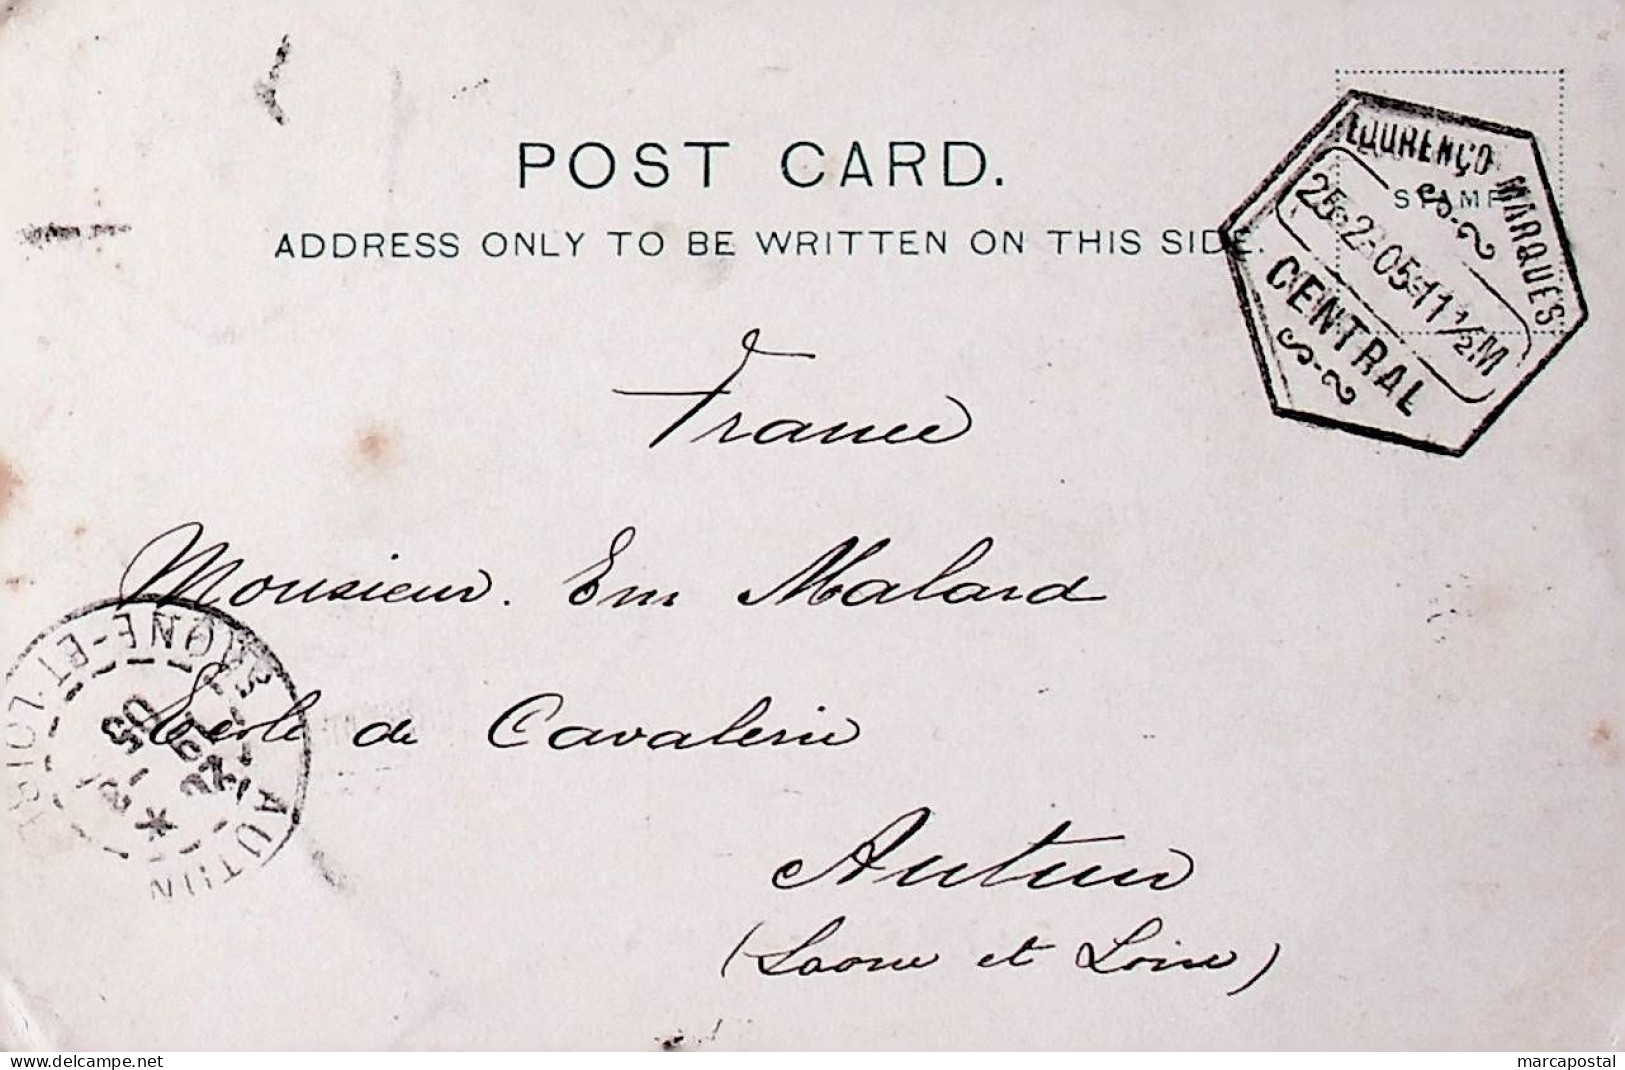 POST CARD.
ADDRESS ONLY TO BE WRITTEN ON THIS SIDE.
STAMP
LOURENÇO MARQUES
25-2-05-11½M
CENTRAL
France
Monsieur. Em Malard
Ecole de Cavalerie
Autun
(Saone et Loire)
AUTUN
SAONE-ET-LOIRE
05
delcampe.net
marcapostal